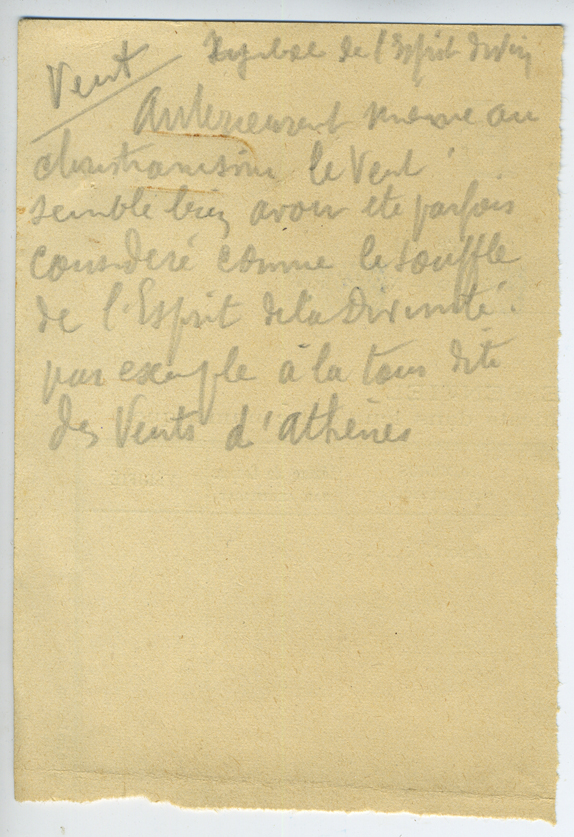 Vent Symbole de l'Esprit divin
Antérieurement meme au
christianisme le Vent
semble bien avoir été parfois
consideré comme le souffle
de l'Esprit de la Divinité.
par exemple à la tour dite
des Vents d'Athènes